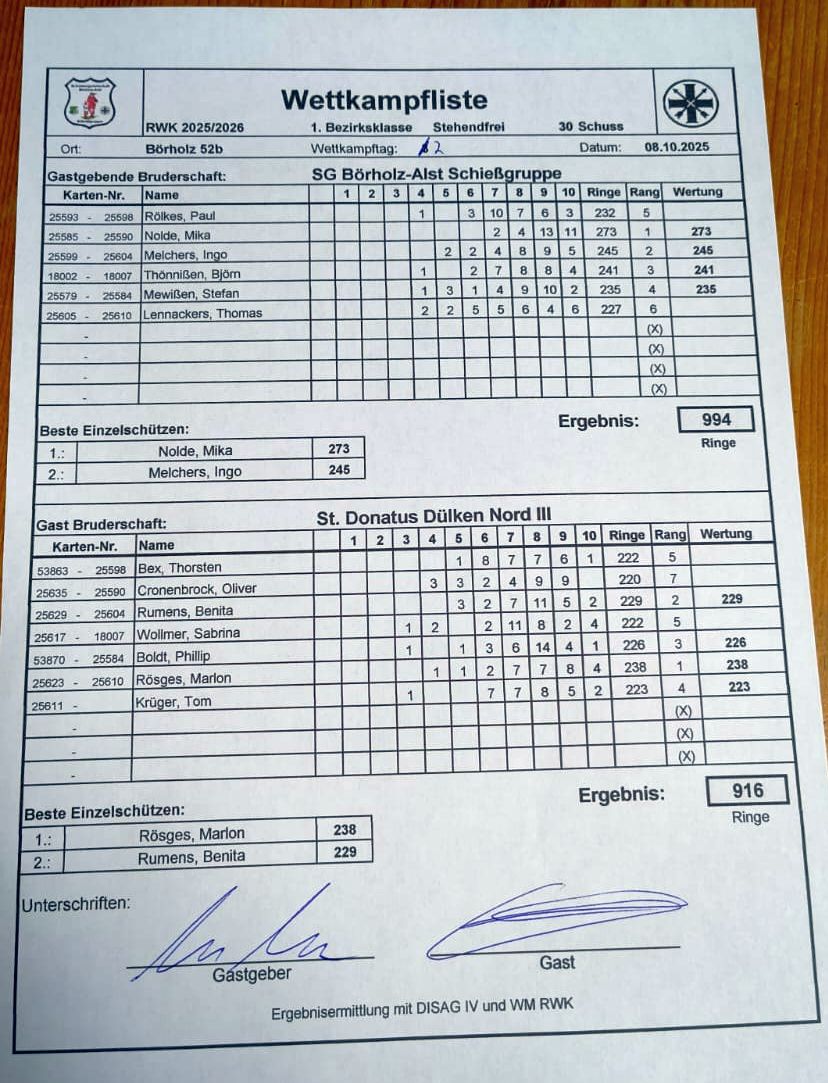 Wettkampfliste
RWK 2025/2026 1. Bezirksklasse Stehendfrei 30 Schuss
Ort: Börholz 52b Wettkampftag: 2 Datum: 08.10.2025
Gastgebende Bruderschaft: SG Börholz-Alst Schießgruppe
Karten-Nr. Name 1 2 3 4 5 6 7 8 9 10 Ringe Rang Wertung
25593 - 25598 Rölkes, Paul 1 3 10 7 6 3 232 5
25585 - 25590 Nolde, Mika 2 4 13 11 273 1 273
25599 - 25604 Melchers, Ingo 2 2 4 8 9 5 245 2 245
18002 - 18007 Thönnißen, Björn 1 2 7 8 8 4 241 3 241
25579 - 25584 Mewißen, Stefan 1 3 1 4 9 10 2 235 4 235
25605 - 25610 Lennackers, Thomas 2 2 5 5 6 4 6 227 6
- (X)
- (X)
- (X)
- (X)
Ergebnis: 994
Ringe
Beste Einzelschützen:
1.: Nolde, Mika 273
2.: Melchers, Ingo 245
Gast Bruderschaft: St. Donatus Dülken Nord III
Karten-Nr. Name 1 2 3 4 5 6 7 8 9 10 Ringe Rang Wertung
53863 - 25598 Bex, Thorsten 1 8 7 7 6 1 222 5
25635 - 25590 Cronenbrock, Oliver 3 3 2 4 9 9 220 7
25629 - 25604 Rumens, Benita 3 2 7 11 5 2 229 2 229
25617 - 18007 Wollmer, Sabrina 1 2 2 11 8 2 4 222 5
53870 - 25584 Boldt, Phillip 1 1 3 6 14 4 1 226 3 226
25623 - 25610 Rösges, Marlon 1 1 2 7 7 8 4 238 1 238
25611 - Krüger, Tom 1 7 7 8 5 2 223 4 223
- (X)
- (X)
- (X)
Ergebnis: 916
Ringe
Beste Einzelschützen:
1.: Rösges, Marlon 238
2.: Rumens, Benita 229
Unterschriften:
Gastgeber Gast
Ergebnisermittlung mit DISAG IV und WM RWK